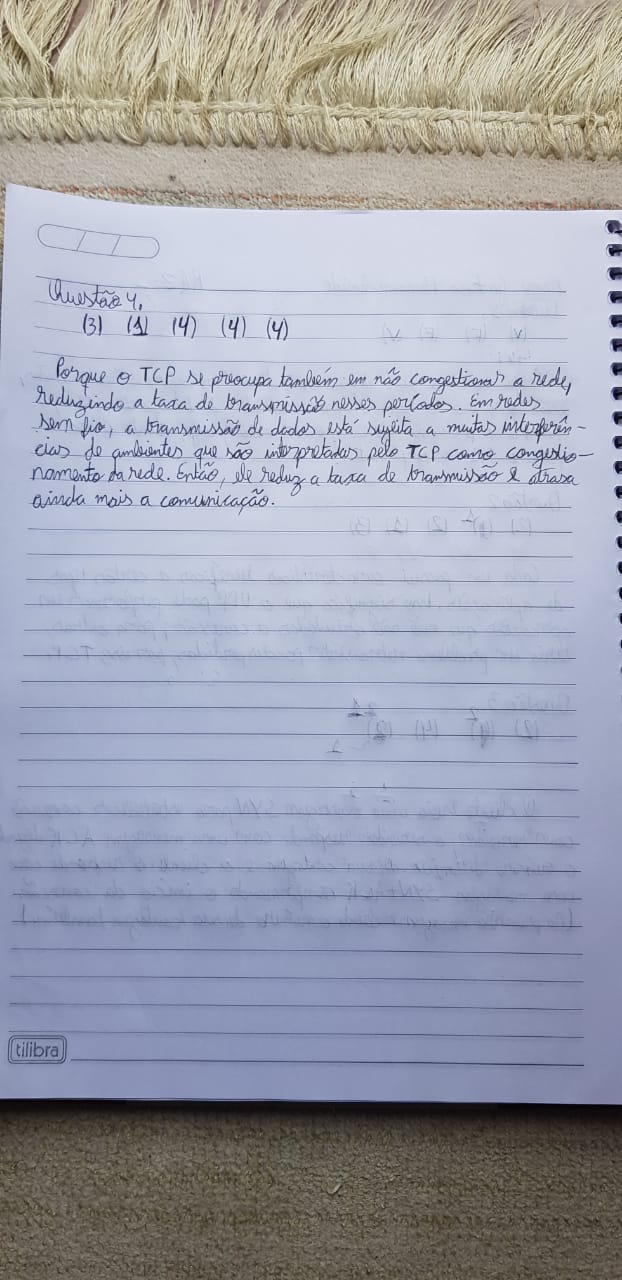 Questão 4.
(3) (1) (4) (4) (4)
Porque o TCP se preocupa também em não congestionar a rede,
reduzindo a taxa de transmissão nesses períodos. Em redes
sem fio, a transmissão de dados está sujeita a muitas interferên-
cias de ambientes que são interpretadas pelo TCP como congestio-
namento da rede. Então, ele reduz a taxa de transmissão e atrasa
ainda mais a comunicação.
tilibra